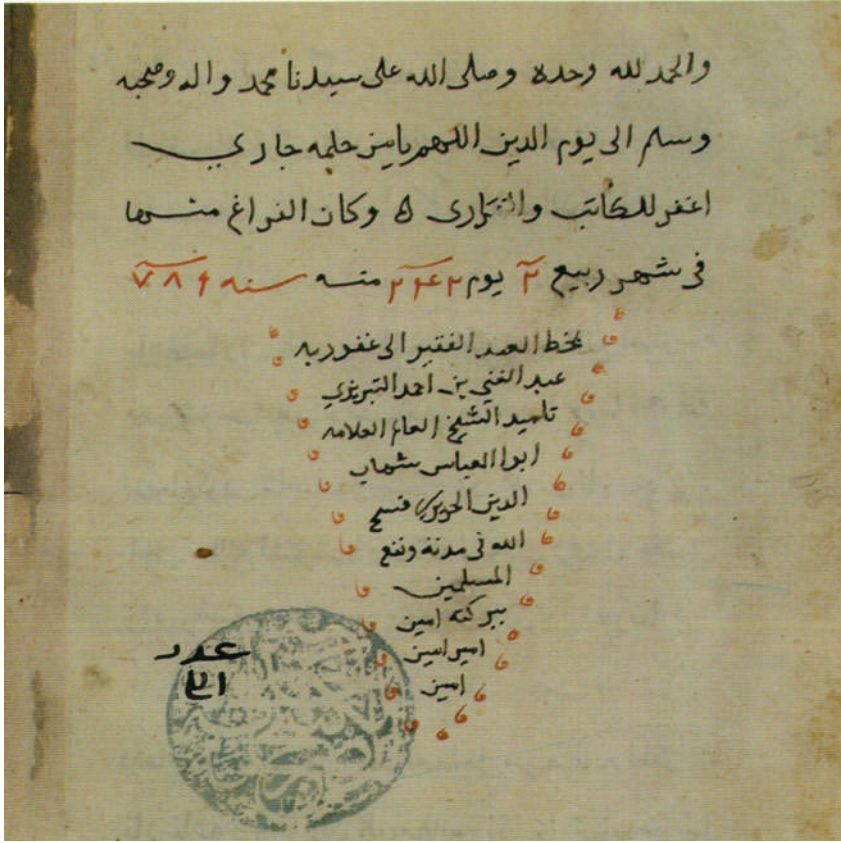 والحمد لله وحده وصلى الله على سيدنا محمد واله وصحبه
وسلم الى يوم الدين اللهم يا من حلمه جاري
اغفر للكاتب والقارى ه وكان الفراغ منها
فى شهر ربيع ٢ يوم ٢٤٢ منه سنه ٧٨٦
بخط العبد الفقير الى عفو ربه
عبد الغني بن احمد التبريزي
تلميد الشيخ العالم العلامه
ابوا العباس شهاب
الدين الحريري فسح
الله فى مدته ونفع
المسلمين
ببركته امين
امين امين
امين
عدد